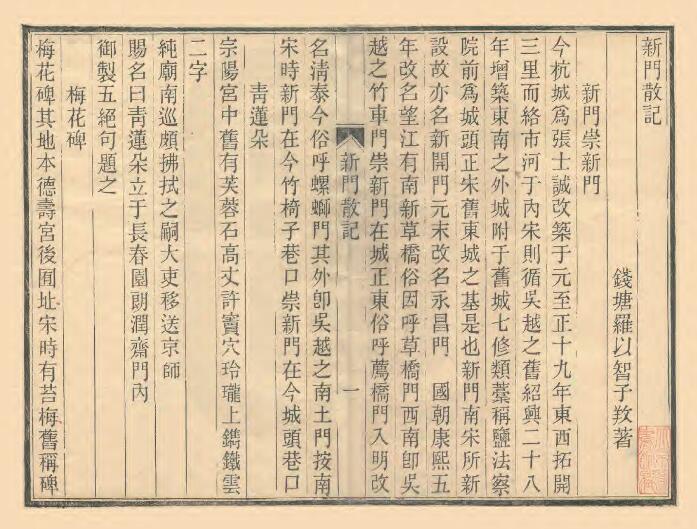 新門散記
錢塘羅以智子㪚著
新門崇新門
今杭城爲張士誠改築于元至正十九年東西拓開
三里而絡市河于內宋則循吳越之舊紹興二十八
年增築東南之外城附于舊城七修類藁稱鹽法察
院前爲城頭正宋舊東城之基是也新門南宋所新
設故亦名新開門元末改名永昌門 國朝康熙五
年改名望江有南新草橋俗因呼草橋門西南卽吳
越之竹車門崇新門在城正東俗呼薦橋門入明改
新門散記 一
名淸泰今俗呼螺螄門其外卽吳越之南土門按南
宋時新門在今竹椅子巷口崇新門在今城頭巷口
靑蓮朵
宗陽宮中舊有芙蓉石高丈許竇穴玲瓏上鐫鐵雲
二字
純廟南巡頗拂拭之嗣大吏移送京師
賜名曰靑蓮朵立于長春園朗潤齋門內
御製五絕句題之
梅花碑
梅花碑其地本德壽宮後圃址宋時有苔梅舊稱碑